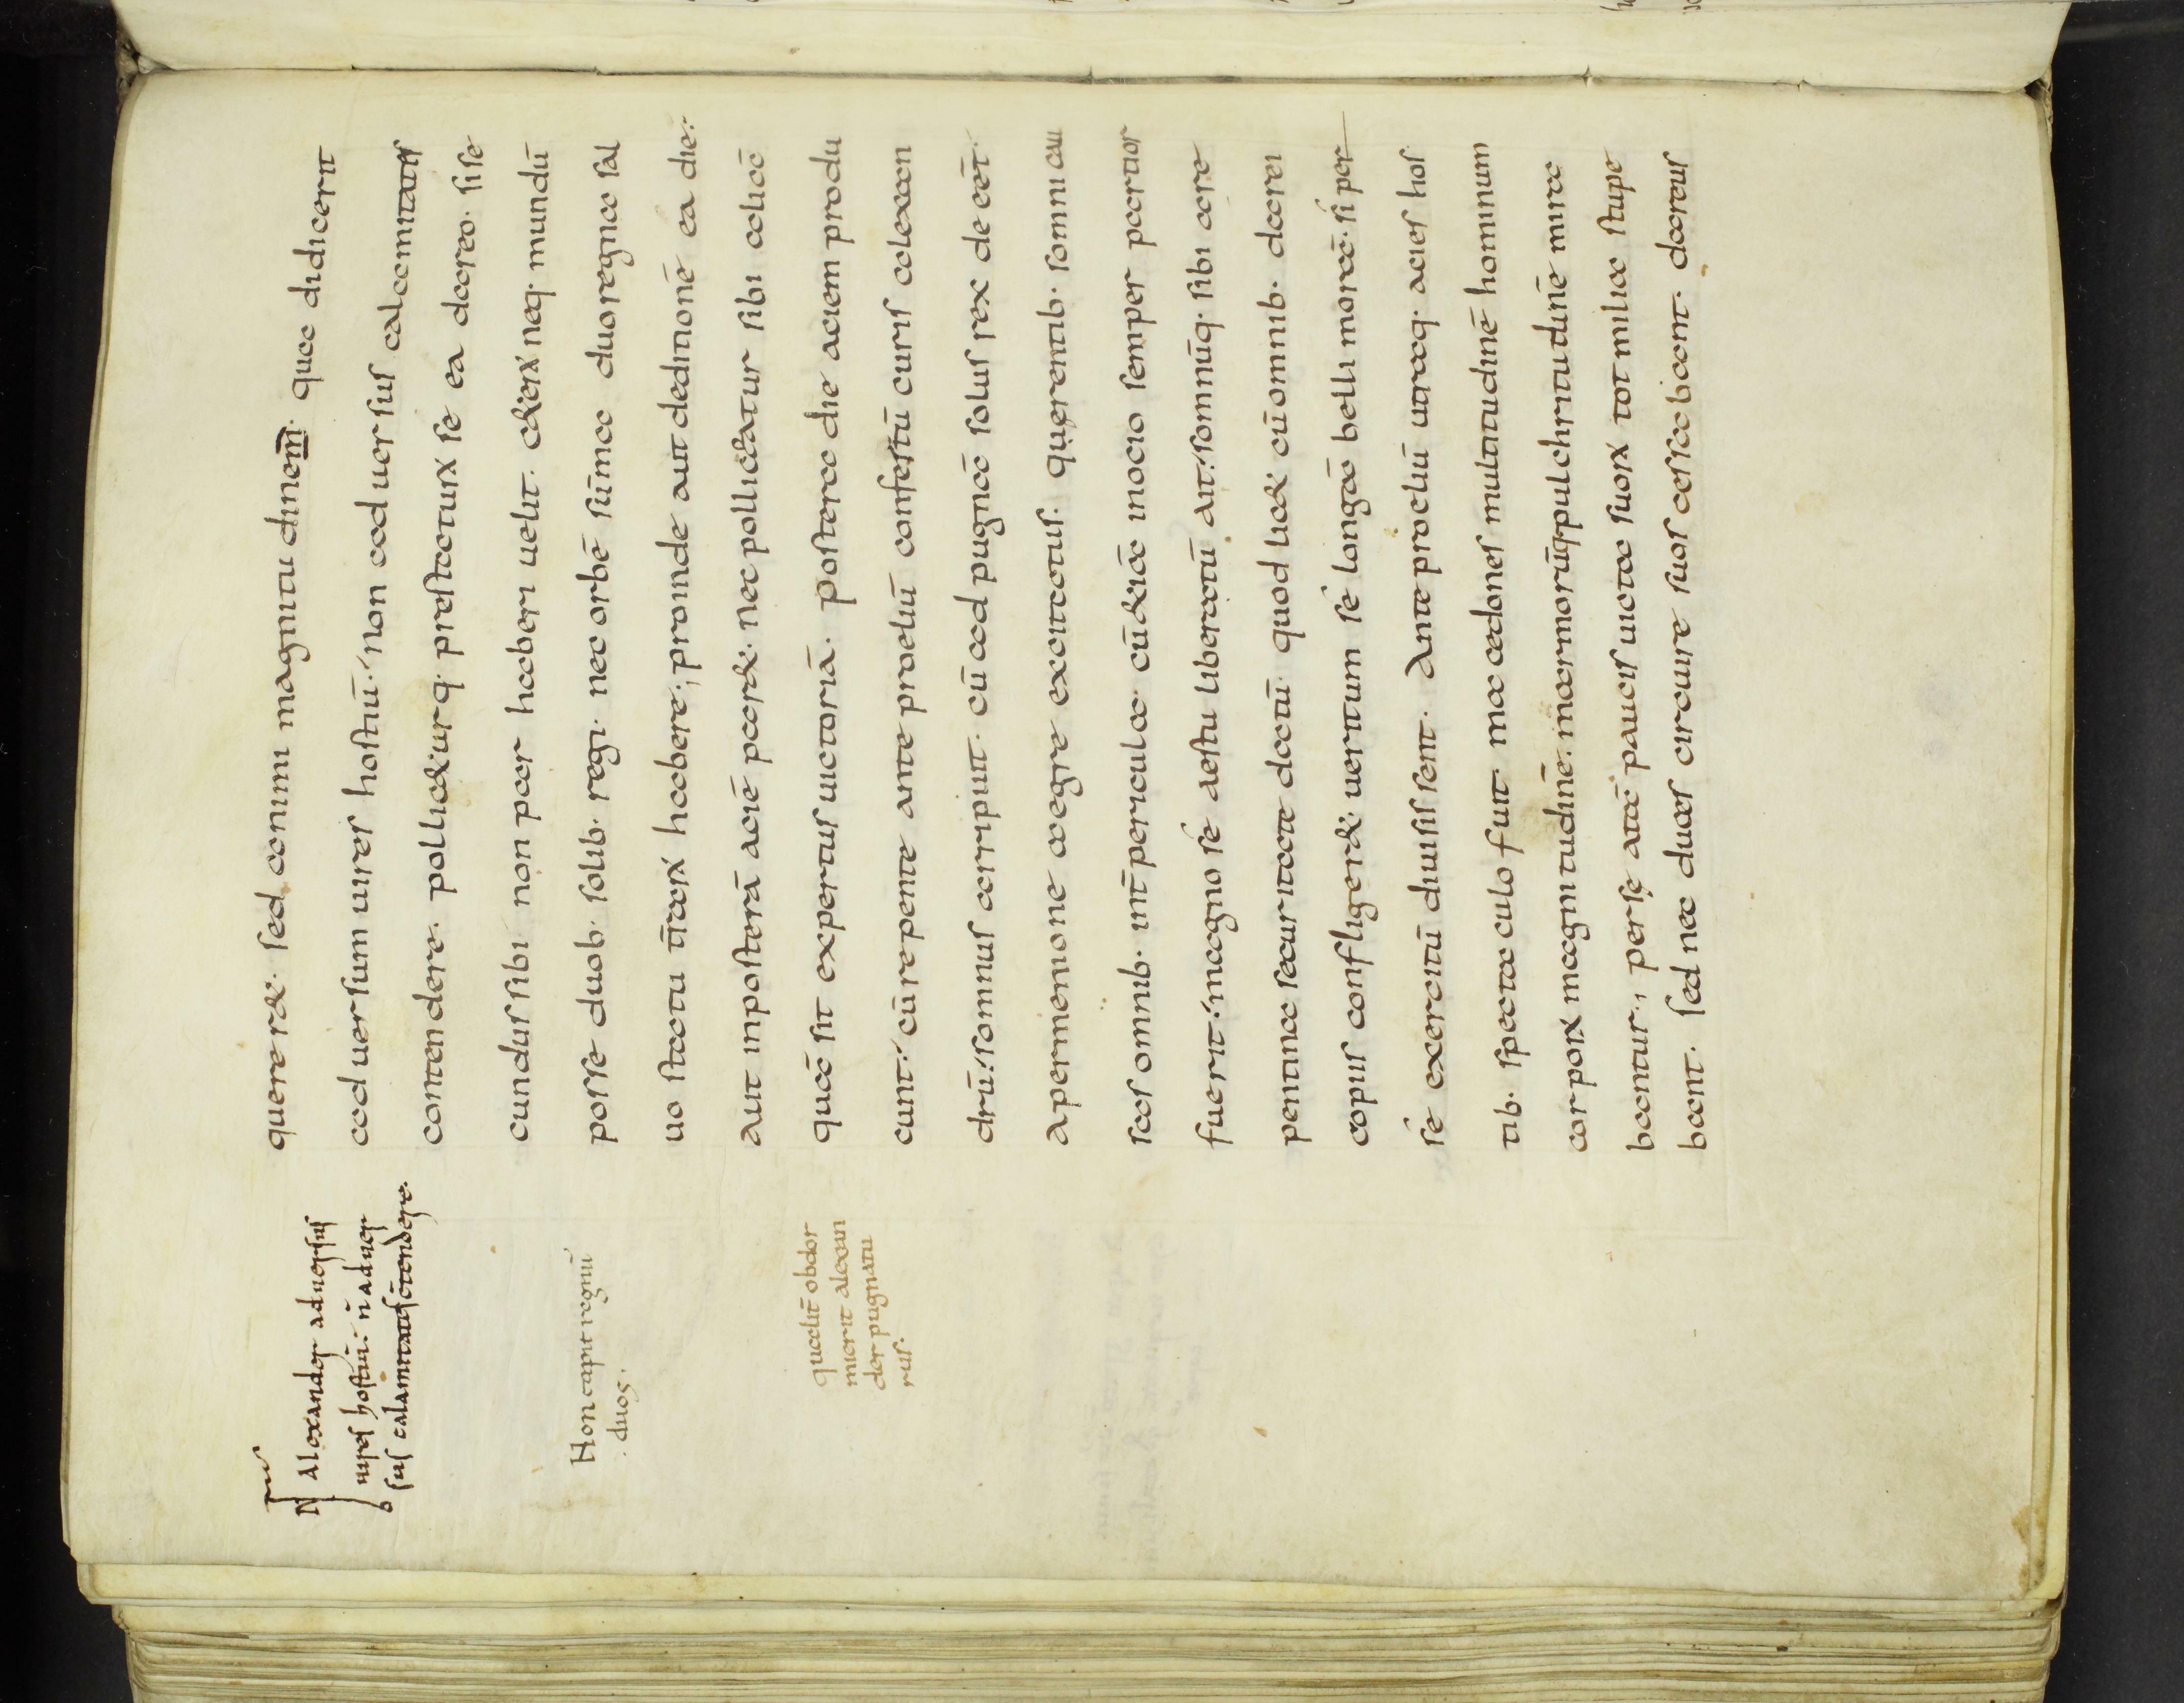 querer&. sed animi magnitudinem. quae didicerit
aduersum uires hostiū. non aduersus calamitates
contendere. pollic&urq. prestaturꝝ se ea dareo. si se
cundus sibi non par haberi uelit. c&erꝝ neq. mundū
posse duob. solib. regi. nec orbē sūmae duo regna sal
uo statu t̄rarꝝ habere; proinde aut deditionē ea die.
aut inposterā aciē par&. nec polliceatur sibi aliā
quā sit expertus uictoriā. postera die aciem produ
cunt. cū repente ante proeliū confestū curis alexan
drū. somnus arripuit. cū ad pugnā solus rex deēēt.
apermenione aegre excitatus. quęrentib. somni cau
sas omnib. int̄ pericula. cū &iā inocio semper partior
fuerit. magno se aestu liberatū ait. somnūq. sibi a re
pentina securitate datū. quod lic&. cū omnib. darei
copiis confliger&. ueritum se longā belli morā. si per
se exercitū diuisissent. Ante proeliū utraq. acies hos
tib. spectaculo fuit. macedones multitudinē hominum
corporꝝ magnitudinē. marmorūq. pulchritudinē mira
bantur; persę atā paucis uicta suorꝝ tot milia stupe
bant. sed nec duces circuire suos cessabant. dareus
Alexander aduersus
uires hostiū. n̄ aduer
sus calamitates c̄tendere.
Non capit regnū
duos.
qualit̄ obdor
mierit alexan
der pugnatu
rus.